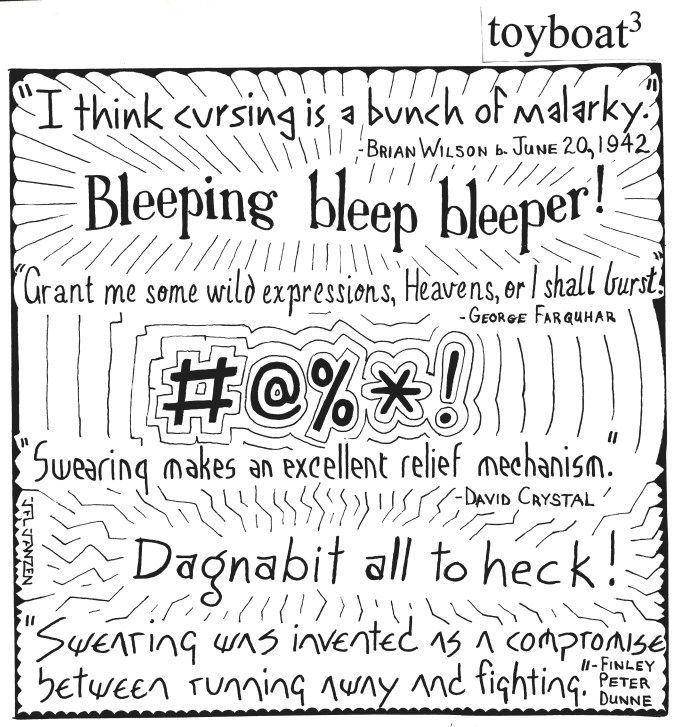 toyboat³
"I think cursing is a bunch of malarky."
-BRIAN WILSON b. JUNE 20, 1942
Bleeping bleep bleeper!
"Grant me some wild expressions, Heavens, or I shall burst."
-GEORGE FARQUHAR
#@%*!
"Swearing makes an excellent relief mechanism."
-DAVID CRYSTAL
Dagnabit all to heck!
"Swearing was invented as a compromise
between running away and fighting."
-FINLEY
PETER
DUNNE